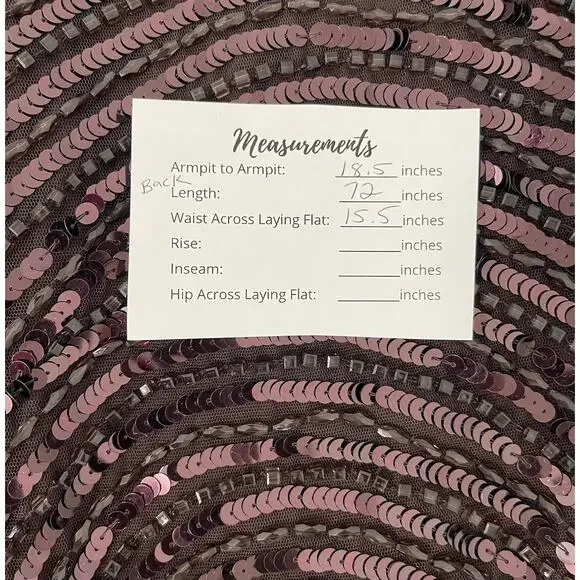 Measurements
Armpit to Armpit: 18.5 inches
Back
Length: 72 inches
Waist Across Laying Flat: 15.5 inches
Rise: ________inches
Inseam: ________inches
Hip Across Laying Flat: ________inches